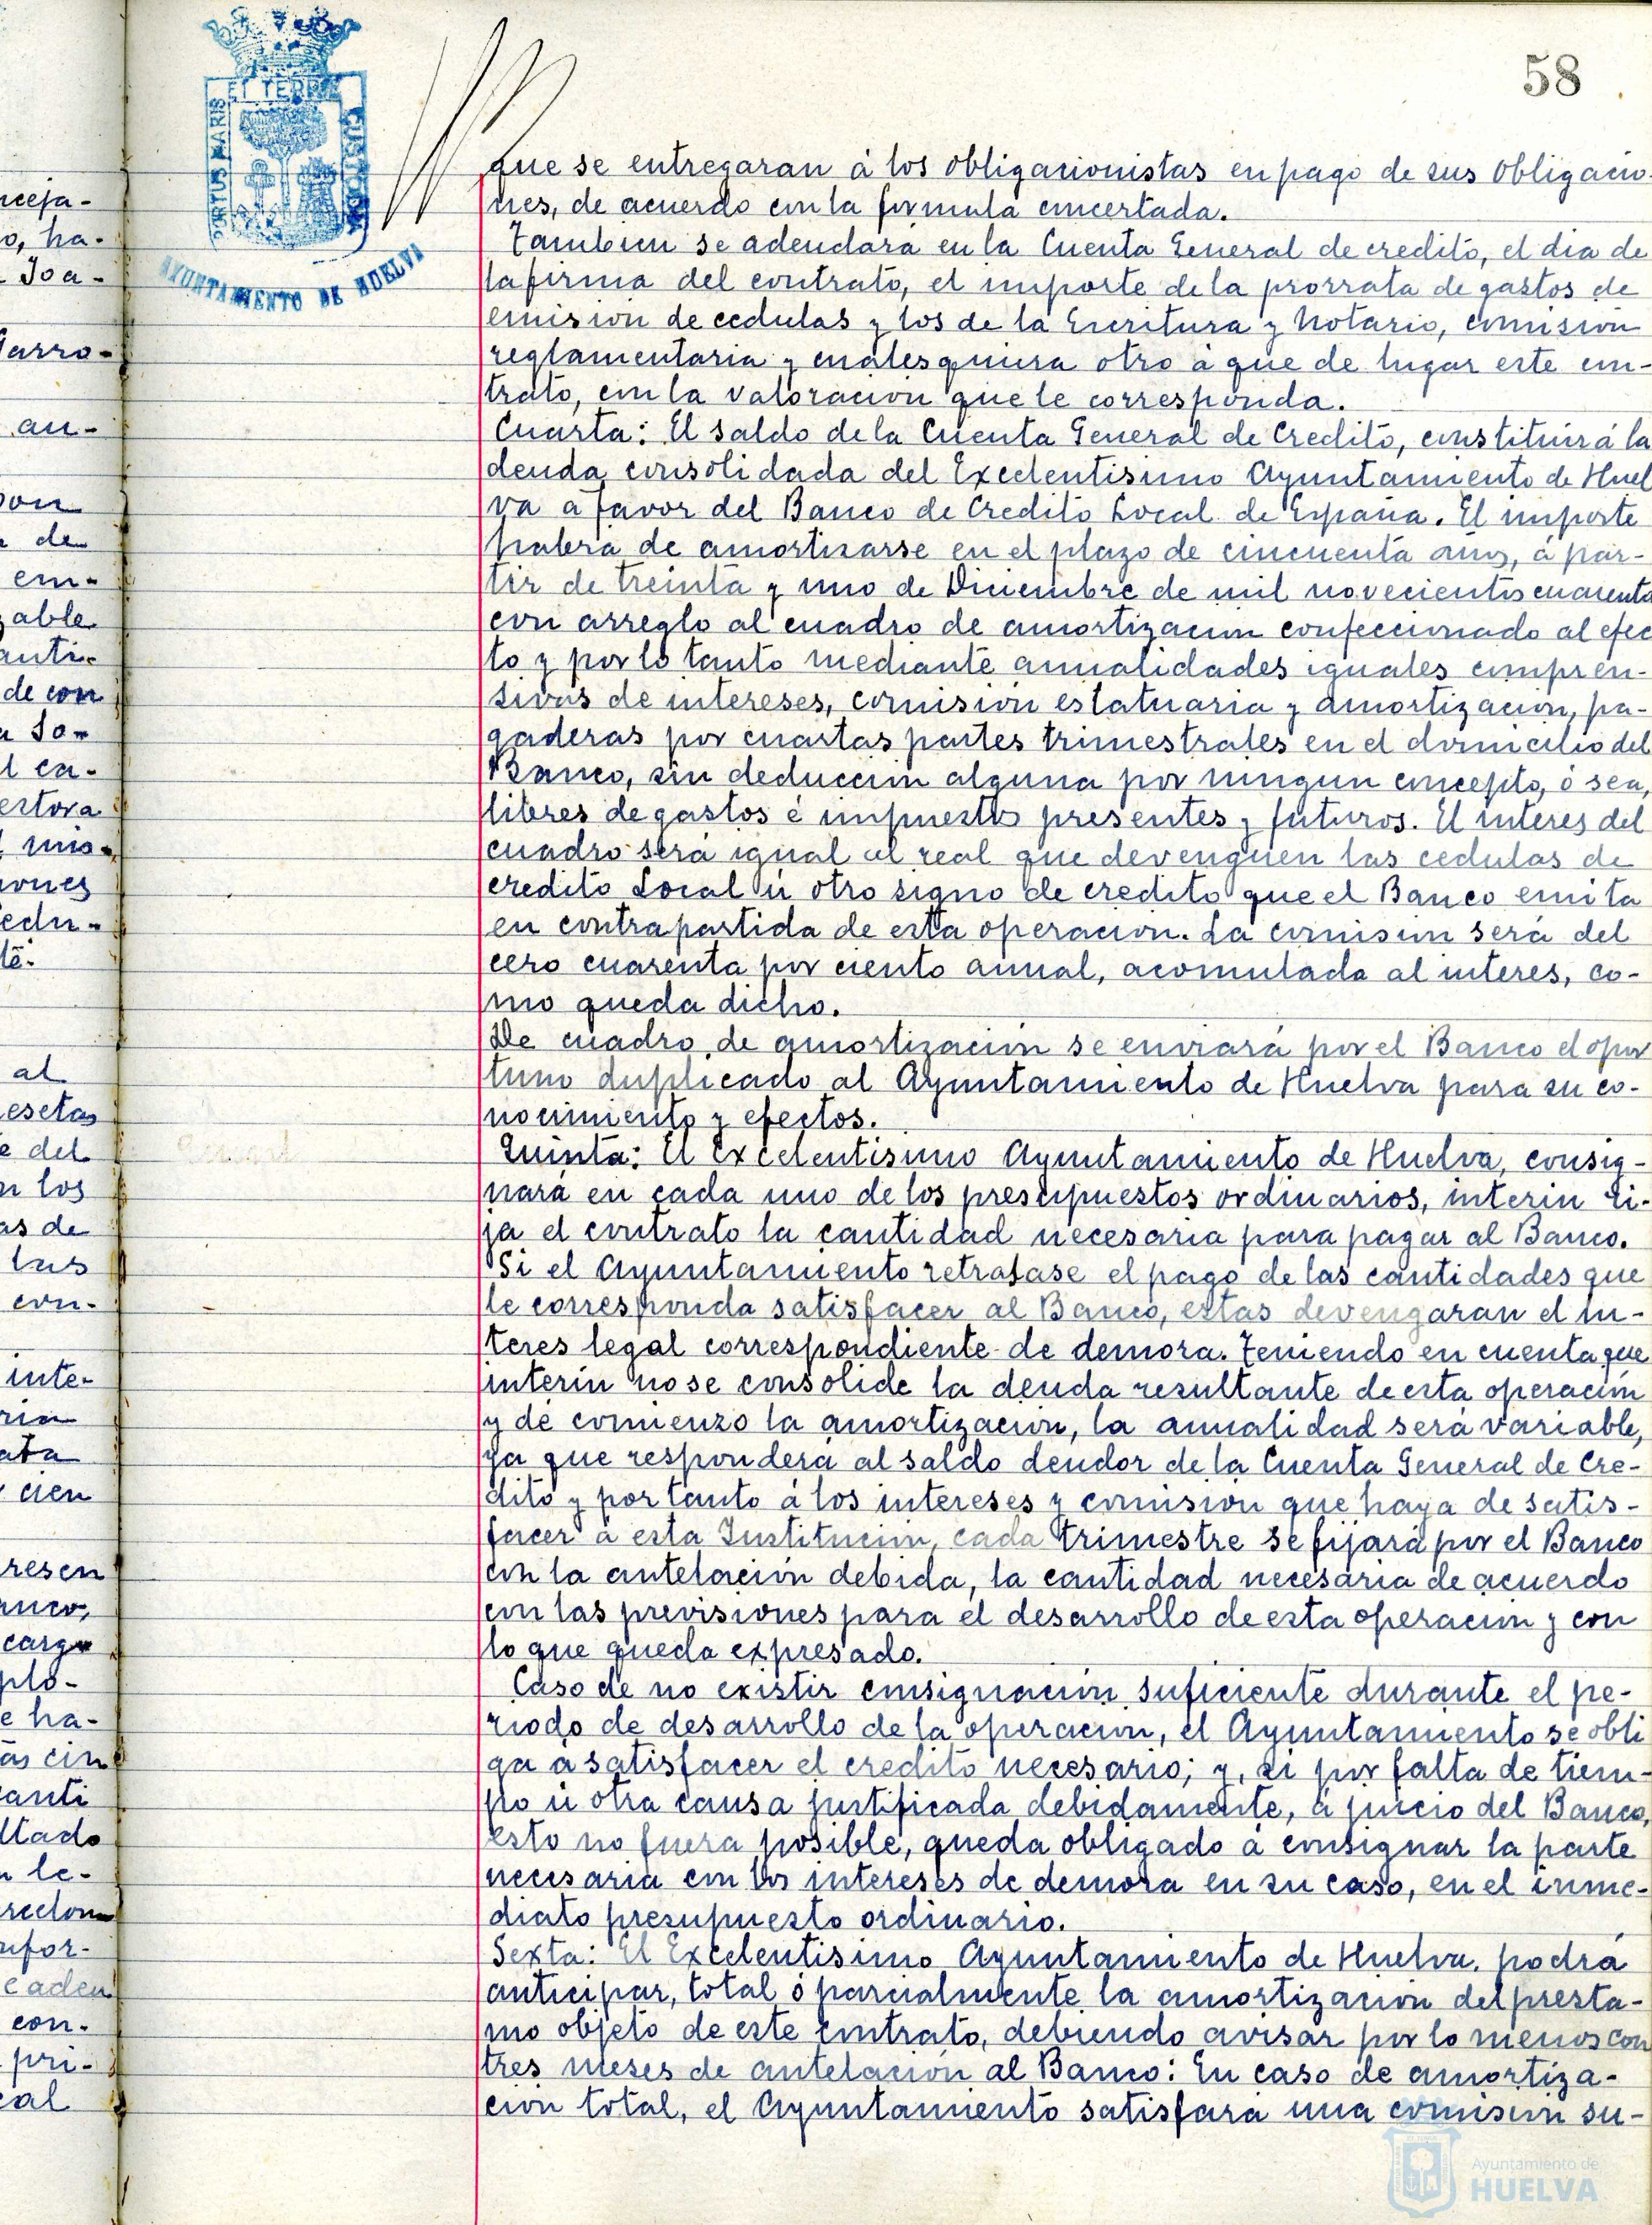 58
PORTUS MARIS ET TERRE CUSTODIA
AYUNTAMIENTO DE HUELVA
que se entregaran á los obligacionistas en pago de sus obligacio-
nes, de acuerdo con la formula concertada.
Tambien se adeudará en la Cuenta General de credito, el dia de
la firma del contrato, el importe de la prorrata de gastos de
emision de cedulas y los de la Escritura y Notario, comision
reglamentaria y cualesquiera otro á que de lugar este con-
trato, con la valoracion que le corresponda.
Cuarta: El saldo de la Cuenta General de Credito, constituirá la
deuda consolidada del Excelentisimo Ayuntamiento de Huel
va a favor del Banco de Credito Local de España. El importe
habra de amortizarse en el plazo de cincuenta años, á par-
tir de treinta y uno de Diciembre de mil novecientos cuarenta
con arreglo al cuadro de amortizacion confeccionado al efec
to y por lo tanto mediante anualidades iguales compren-
sivas de intereses, comision estatuaria y amortizacion, pa-
gaderas por cuartas partes trimestrales en el domicilio del
Banco, sin deduccion alguna por ningun concepto, ó sea,
libres de gastos é impuestos presentes y futuros. El interes del
cuadro será igual al real que devenguen las cedulas de
credito Local ú otro signo de credito que el Banco emita
en contrapartida de esta operacion. La comision será del
cero cuarenta por ciento anual, acomulada al interes, co-
mo queda dicho.
De cuadro de amortización se enviará por el Banco el opor
tuno duplicado al Ayuntamiento de Huelva para su co-
nocimiento y efectos.
Quinta: El Excelentisimo Ayuntamiento de Huelva, consig-
nará en cada uno de los presupuestos ordinarios, interin ri-
ja el contrato la cantidad necesaria para pagar al Banco.
Si el Ayuntamiento retrasase el pago de las cantidades que
le corresponda satisfacer al Banco, estas devengaran el in-
teres legal correspondiente de demora. Teniendo en cuenta que
interin no se consolide la deuda resultante de esta operacion
y dé comienzo la amortización, la anualidad será variable,
ya que responderá al saldo deudor de la Cuenta General de Cre-
dito y por tanto á los intereses y comision que haya de satis-
facer á esta Institucion, cada trimestre se fijará por el Banco
con la antelación debida, la cantidad necesaria de acuerdo
con las previsiones para el desarrollo de esta operacion y con
lo que queda expresado.
Caso de no existir consignacion suficiente durante el pe-
riodo de desarrollo de la operacion, el Ayuntamiento se obli
ga á satisfacer el credito necesario; y, si por falta de tiem-
po ú otra causa justificada debidamente, á juicio del Banco,
esto no fuera posible, queda obligado á consignar la parte
necesaria con los intereses de demora en su caso, en el inme-
diato presupuesto ordinario.
Sexta: El Excelentisimo Ayuntamiento de Huelva, podrá
anticipar, total ó parcialmente la amortizacion del presta-
mo objeto de este contrato, debiendo avisar por lo menos con
tres meses de antelación al Banco: En caso de amortiza-
cion total, el Ayuntamiento satisfara una comision su-
Ayuntamiento de
HUELVA